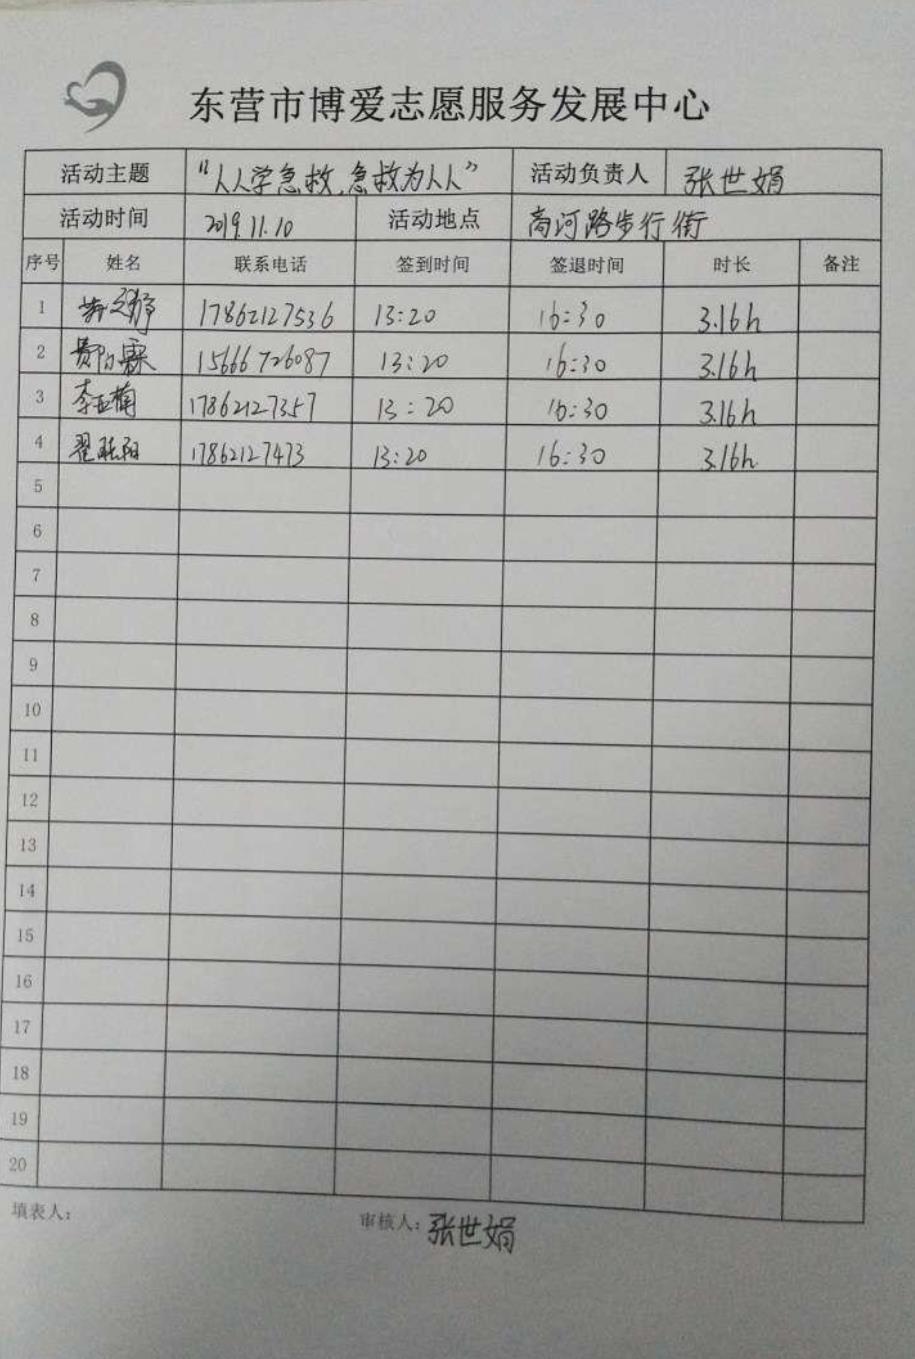 东营市博爱志愿服务发展中心
活动主题 “人人学急救,急救为人人” 活动负责人 张世娟
活动时间 2019.11.10 活动地点 商河路步行街
序号 姓名 联系电话 签到时间 签退时间 时长 备注
1 17862127536 13:20 16:30 3.16h
2 15666726087 13:20 16:30 3.16h
3 李亚楠 17862127357 13:20 16:30 3.16h
4 17862127473 13:20 16:30 3.16h
5
6
7
8
9
10
11
12
13
14
15
16
17
18
19
20
填表人: 审核人: 张世娟